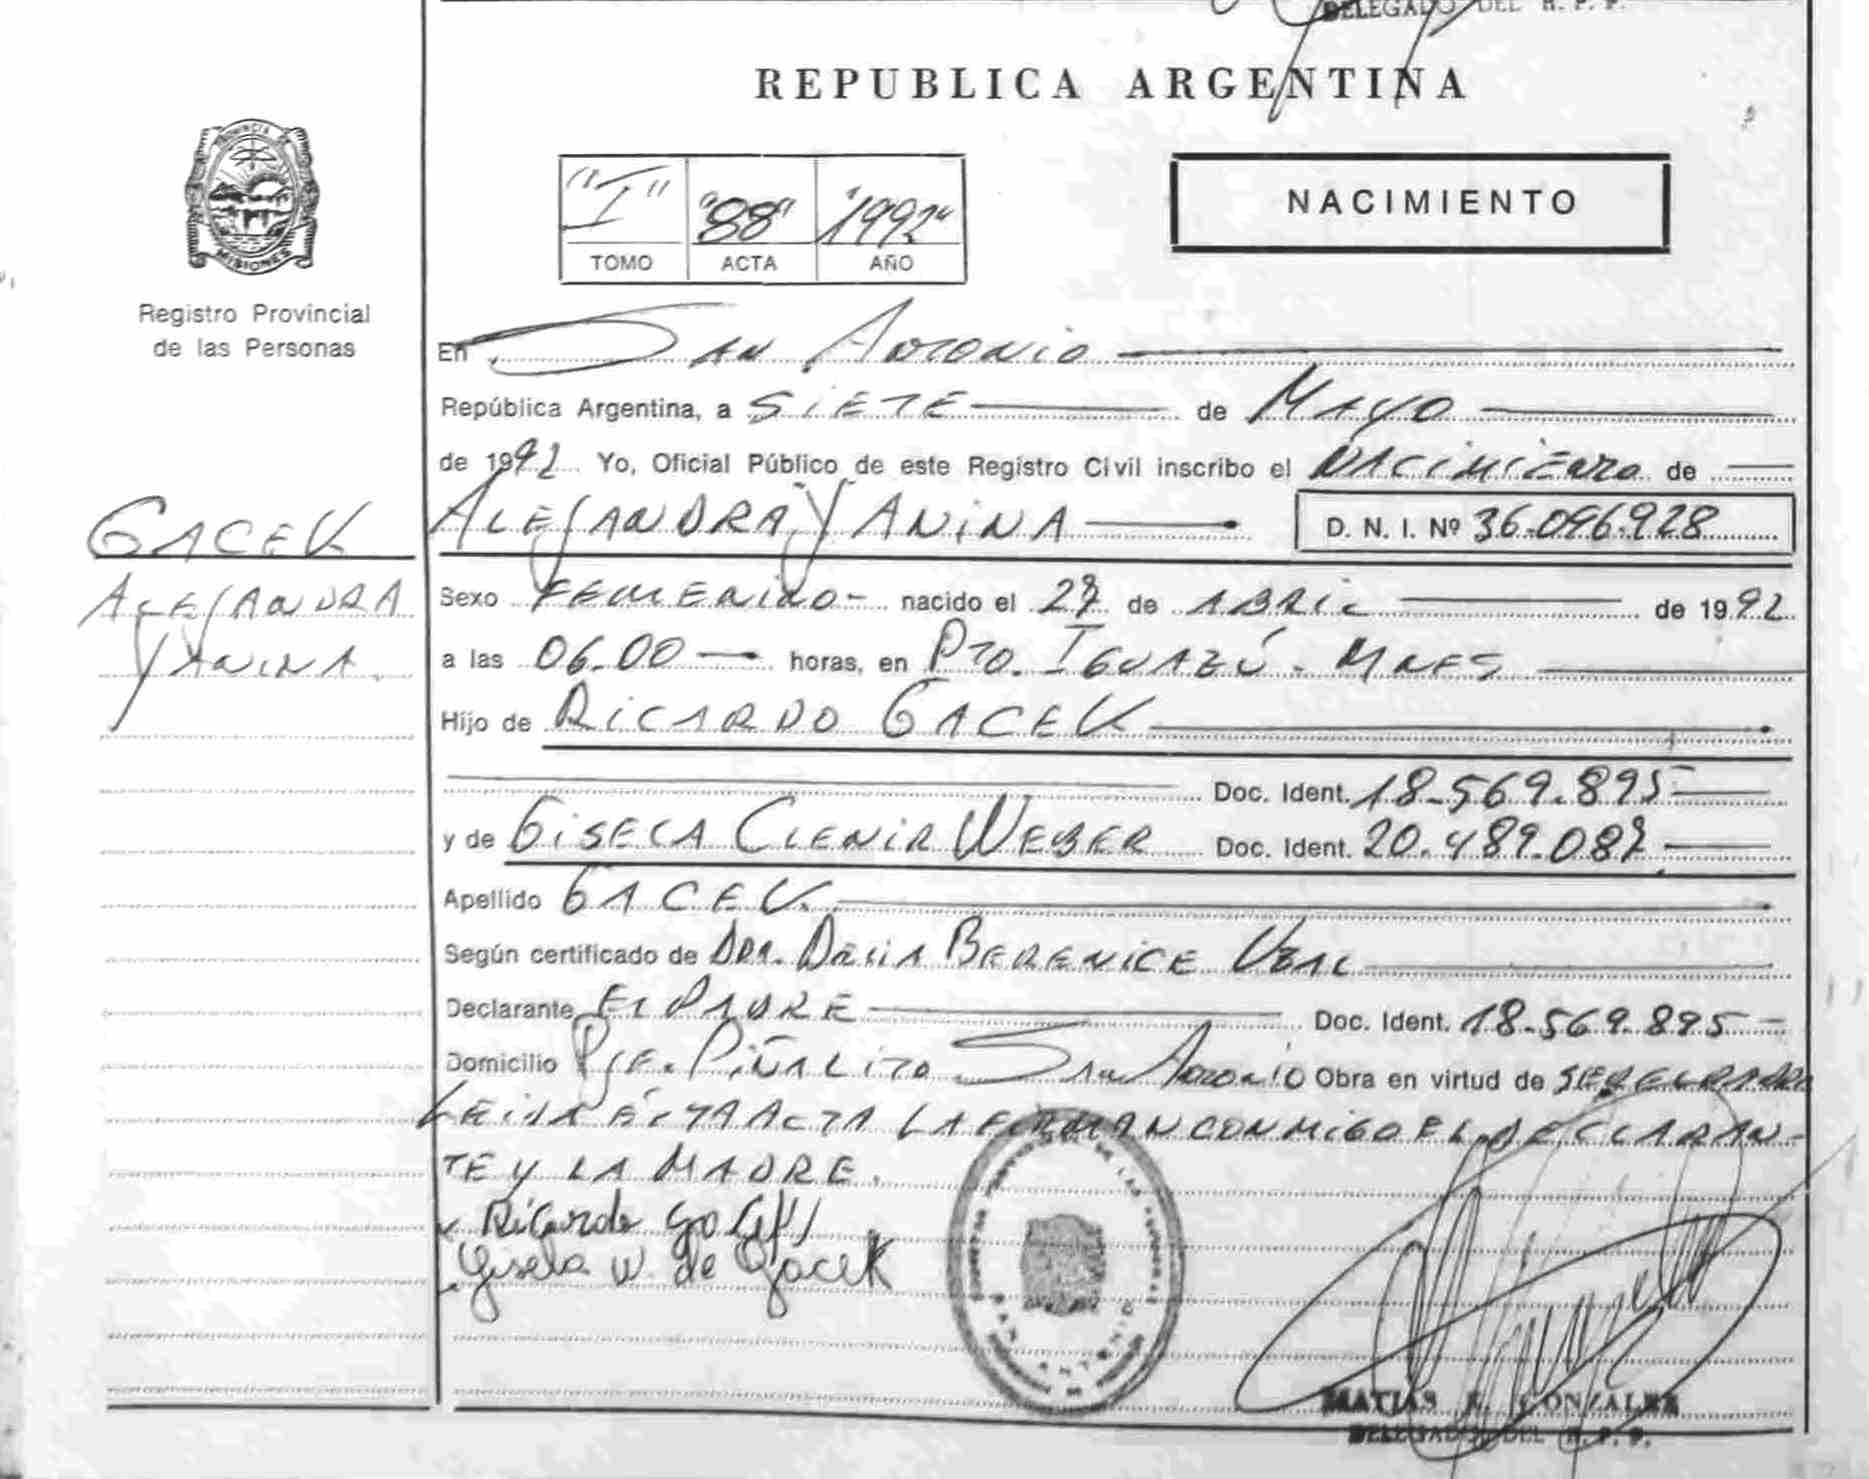 DELEGADO DEL R. P. P.
REPUBLICA ARGENTINA
PROVINCIA DE
MISIONES
Registro Provincial
de las Personas
"I" "88" "1992"
TOMO ACTA AÑO
NACIMIENTO
En San Antonio
República Argentina, a SIETE de Mayo
de 1992 Yo, Oficial Público de este Registro Civil inscribo el NACIMIENTO de
GACEK
ALEJANDRA YANINA D. N. I. Nº 36.096.928
ALEJANDRA
YANINA.
Sexo FEMENINO- nacido el 27 de ABRIL de 1992
a las 06.00 horas, en Pto. IGUAZÚ - MNES
Hijo de RICARDO GACEK
Doc. Ident. 18.569.895
y de GISELA CLENIR WEBER Doc. Ident. 20.489.087
Apellido GACEK.
Según certificado de DRA. BERENICE
Declarante EL PADRE Doc. Ident. 18.569.895
Domicilio PJE. PIÑALITO SAN ANTONIO Obra en virtud de
LEIDA ÉSTA ACTA LA FIRMAN CONMIGO EL DECLARAN-
TE Y LA MADRE.
Ricardo
Gisela W. de Gacek
SAN ANTONIO
MATIAS E. GONZALEZ
DELEGADO DEL R. P. P.